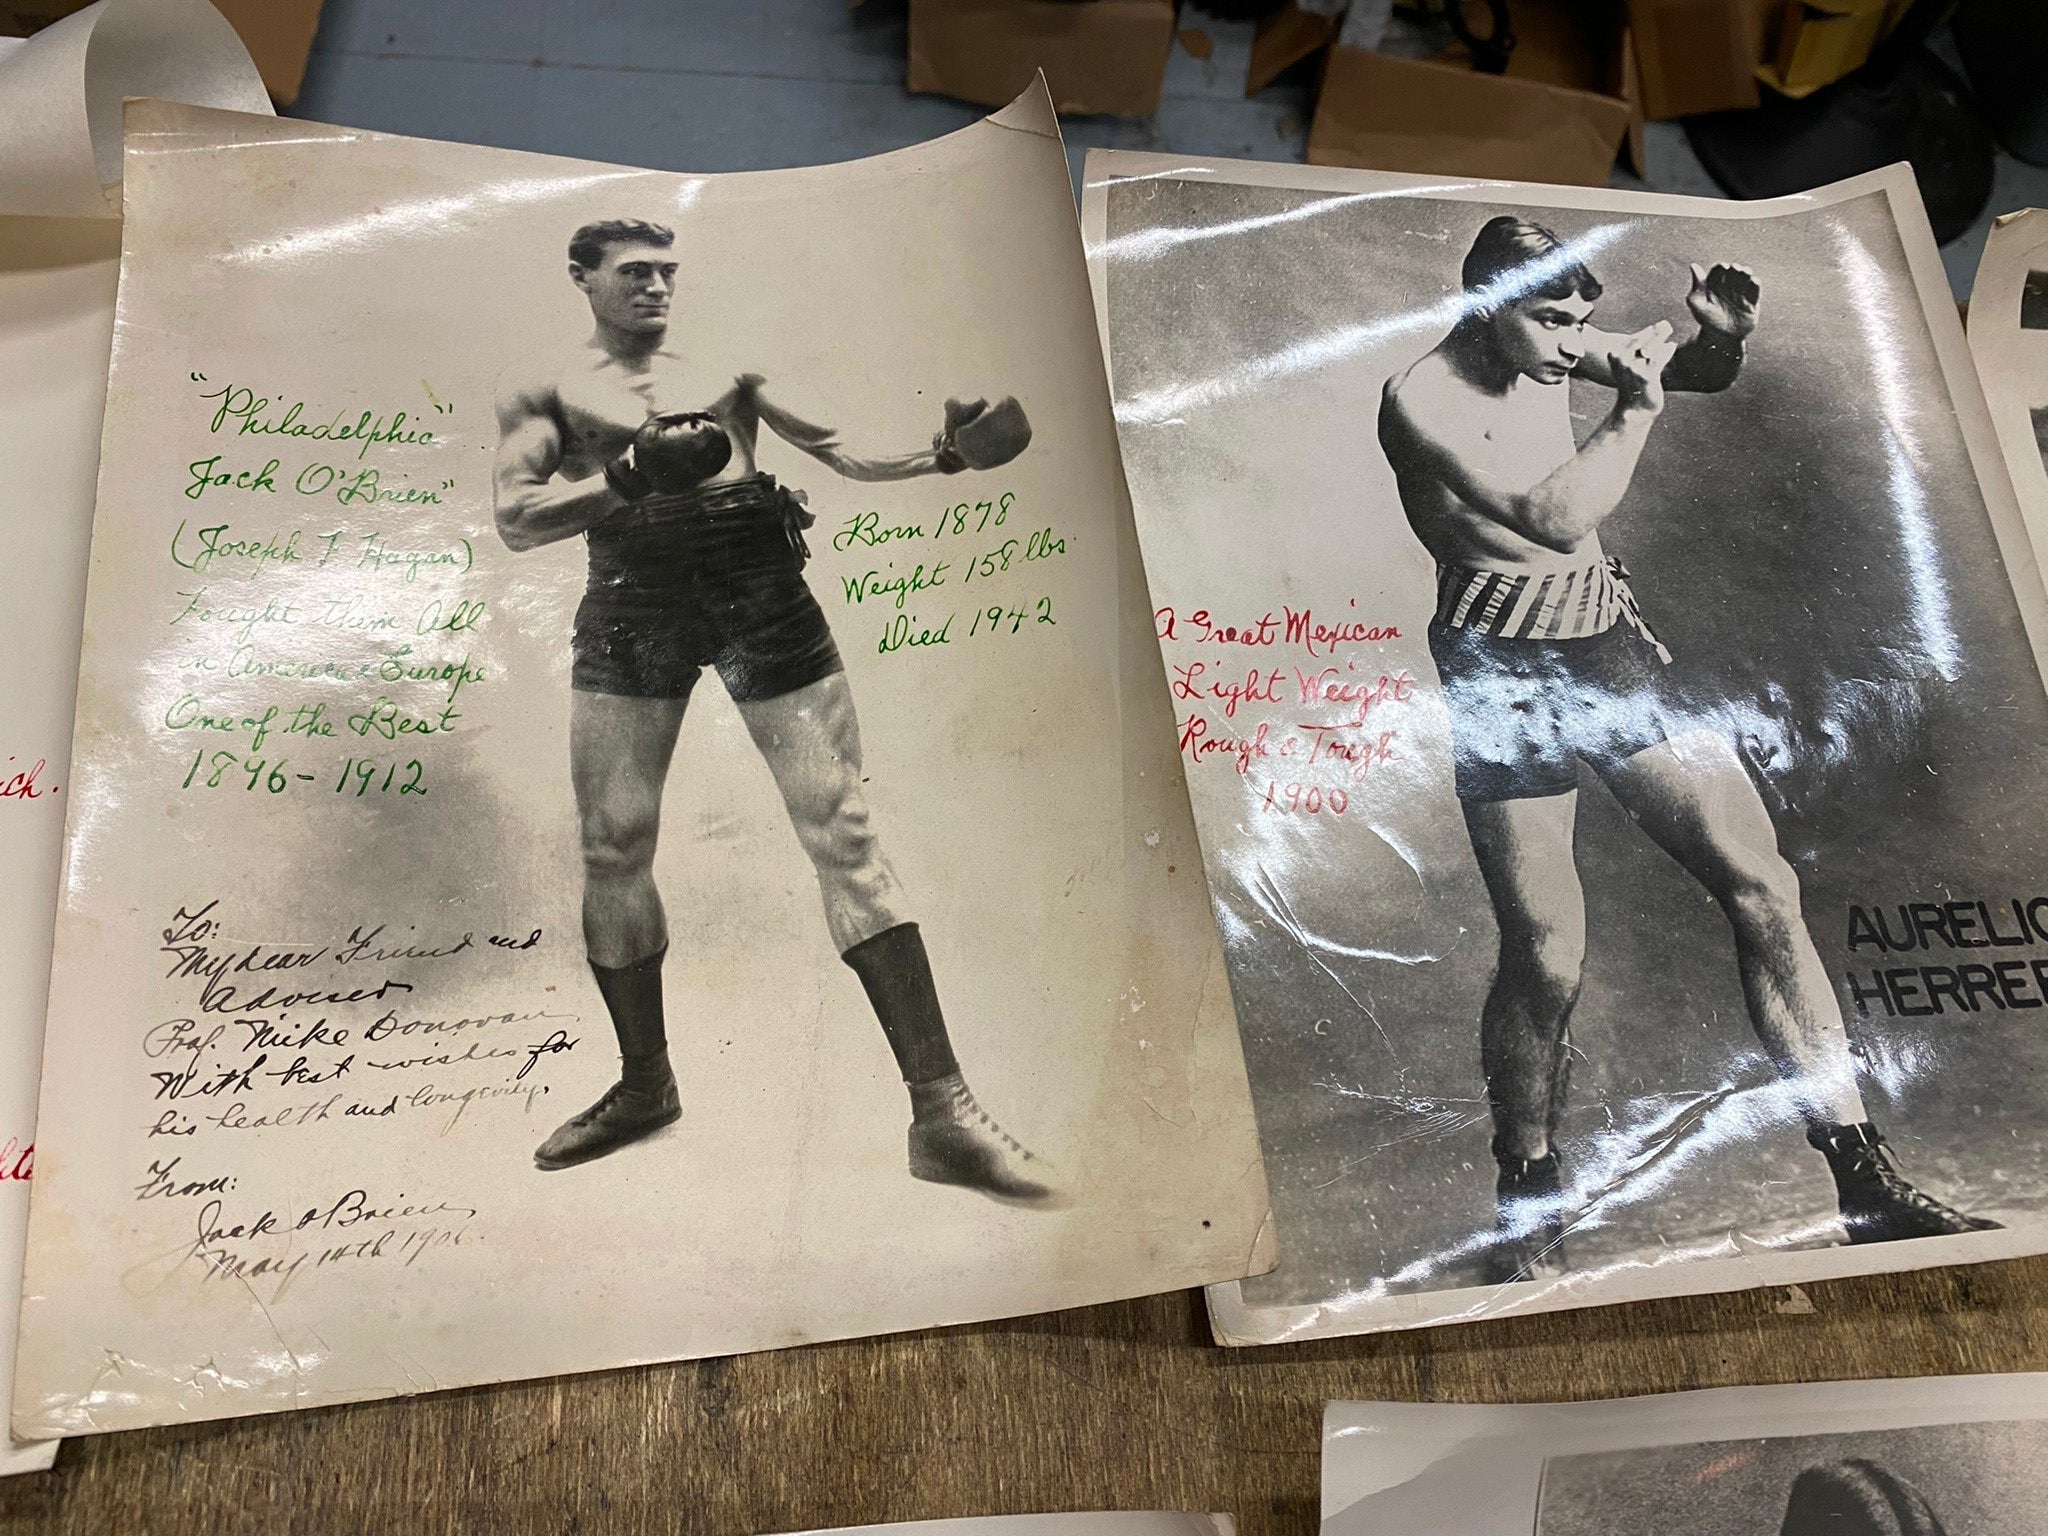 "Philadelphia"
Jack O'Brien"
(Joseph F Hagan)
Fought them All
in America & Europe
One of the Best
1896-1912
Born 1878
Weight 158 lbs.
Died 1942
To:
My dear Friend and
Adviser
Prof. Mike Donovan
With best wishes for
his health and longevity.
From:
Jack O'Brien
May 14th 1906.
A Great Mexican
Light Weight
Rough & Tough
1900
AURELIO
HERRER
ich.